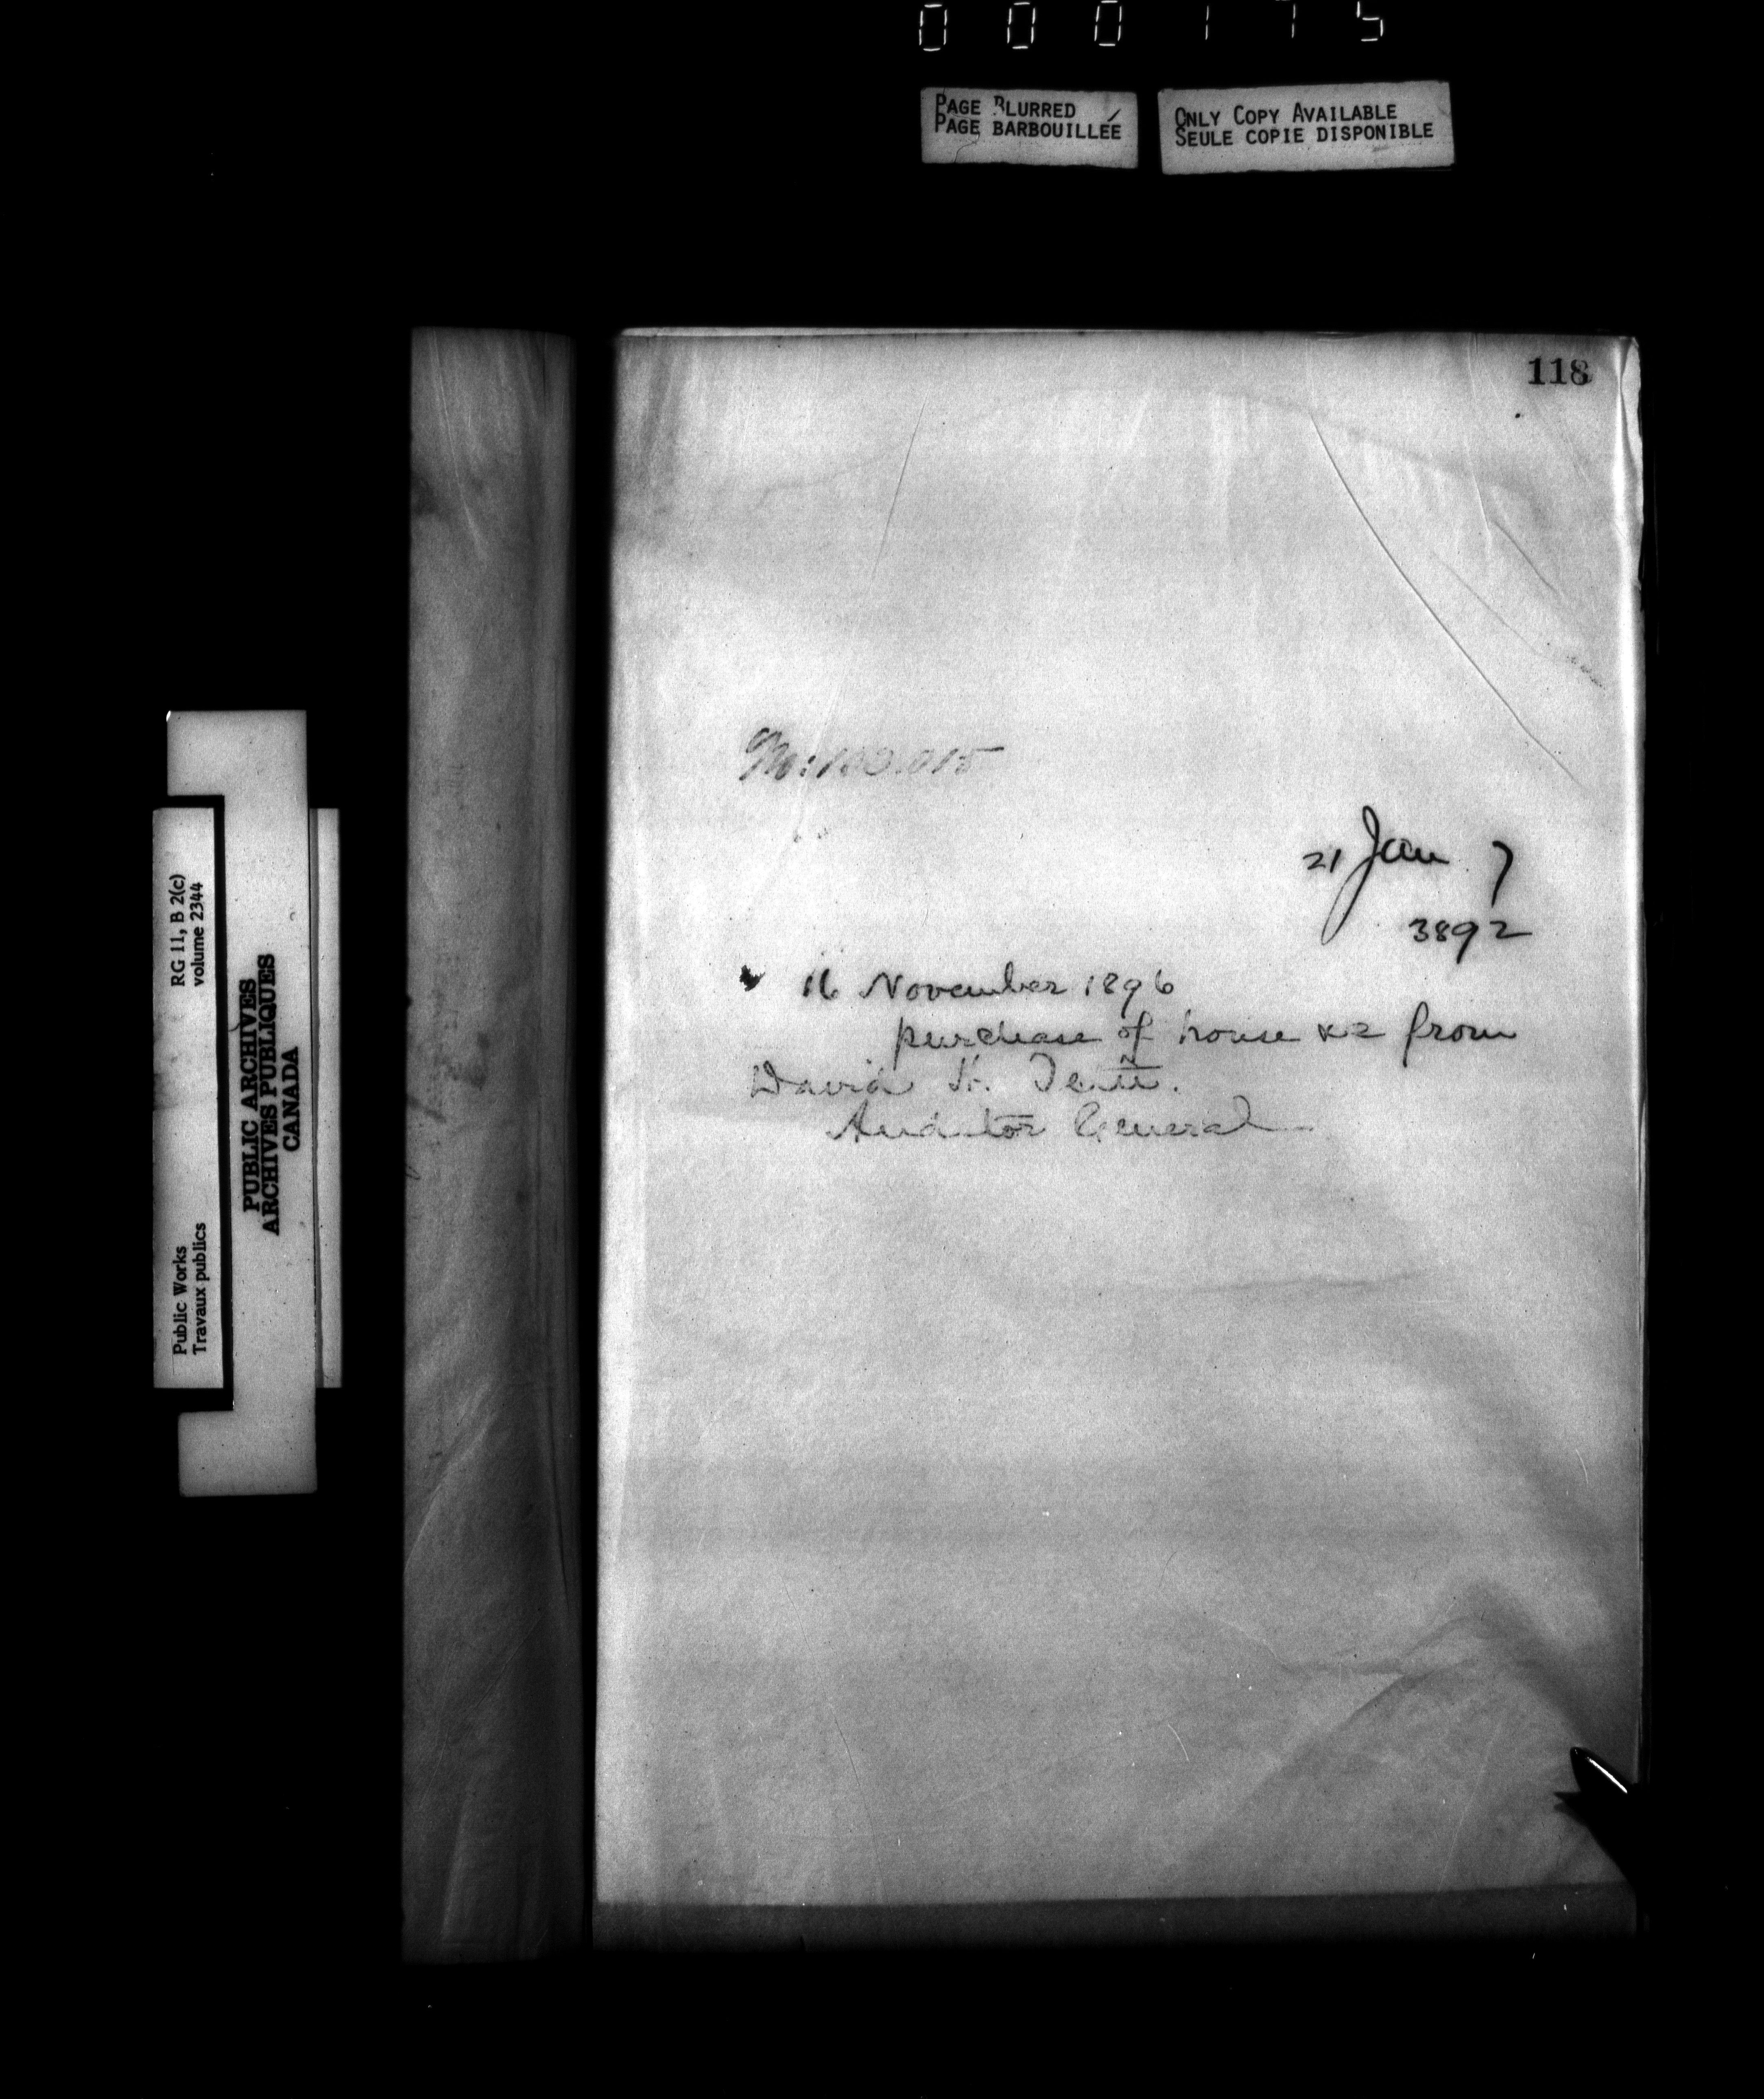 000175
PAGE BLURRED
PAGE BARBOUILLÉE
ONLY COPY AVAILABLE
SEULE COPIE DISPONIBLE
118
21 Jan 7
3892
16 November 1896
purchase of house &c from
David H.
Auditor General
RG 11, B 2(c)
volume 2344
Public Works
Travaux publics
PUBLIC ARCHIVES
ARCHIVES PUBLIQUES
CANADA